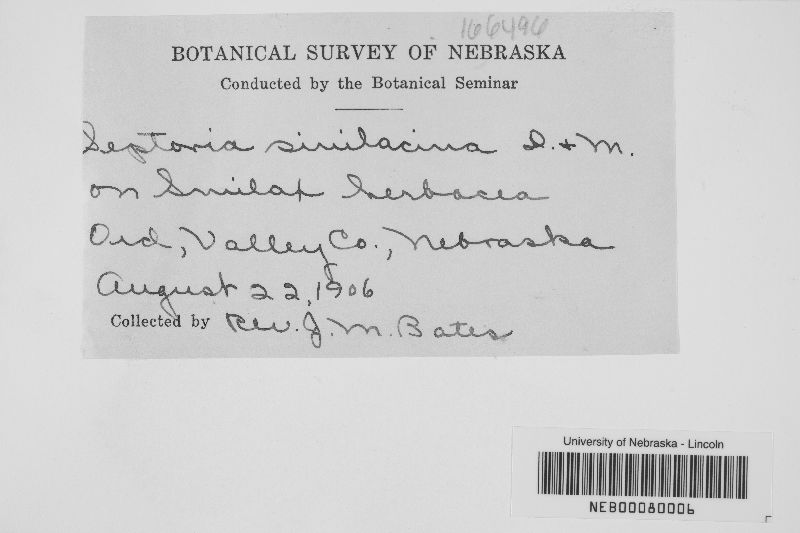 166496
BOTANICAL SURVEY OF NEBRASKA
Conducted by the Botanical Seminar
Septoria similacina D. & M.
on Smilax herbacea
Ord, Valley Co., Nebraska
August 22, 1906
Collected by Rev. J. M. Bates
University of Nebraska - Lincoln
NEB00080006